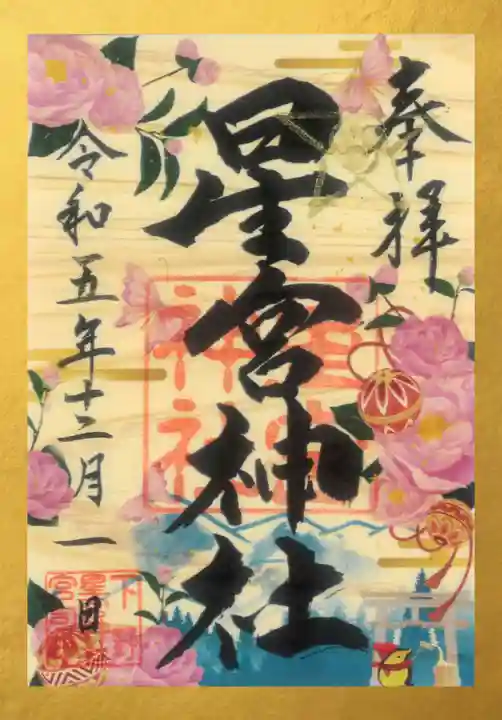 奉拝
星宮神社
星宮
神社
令和五年十二月一日